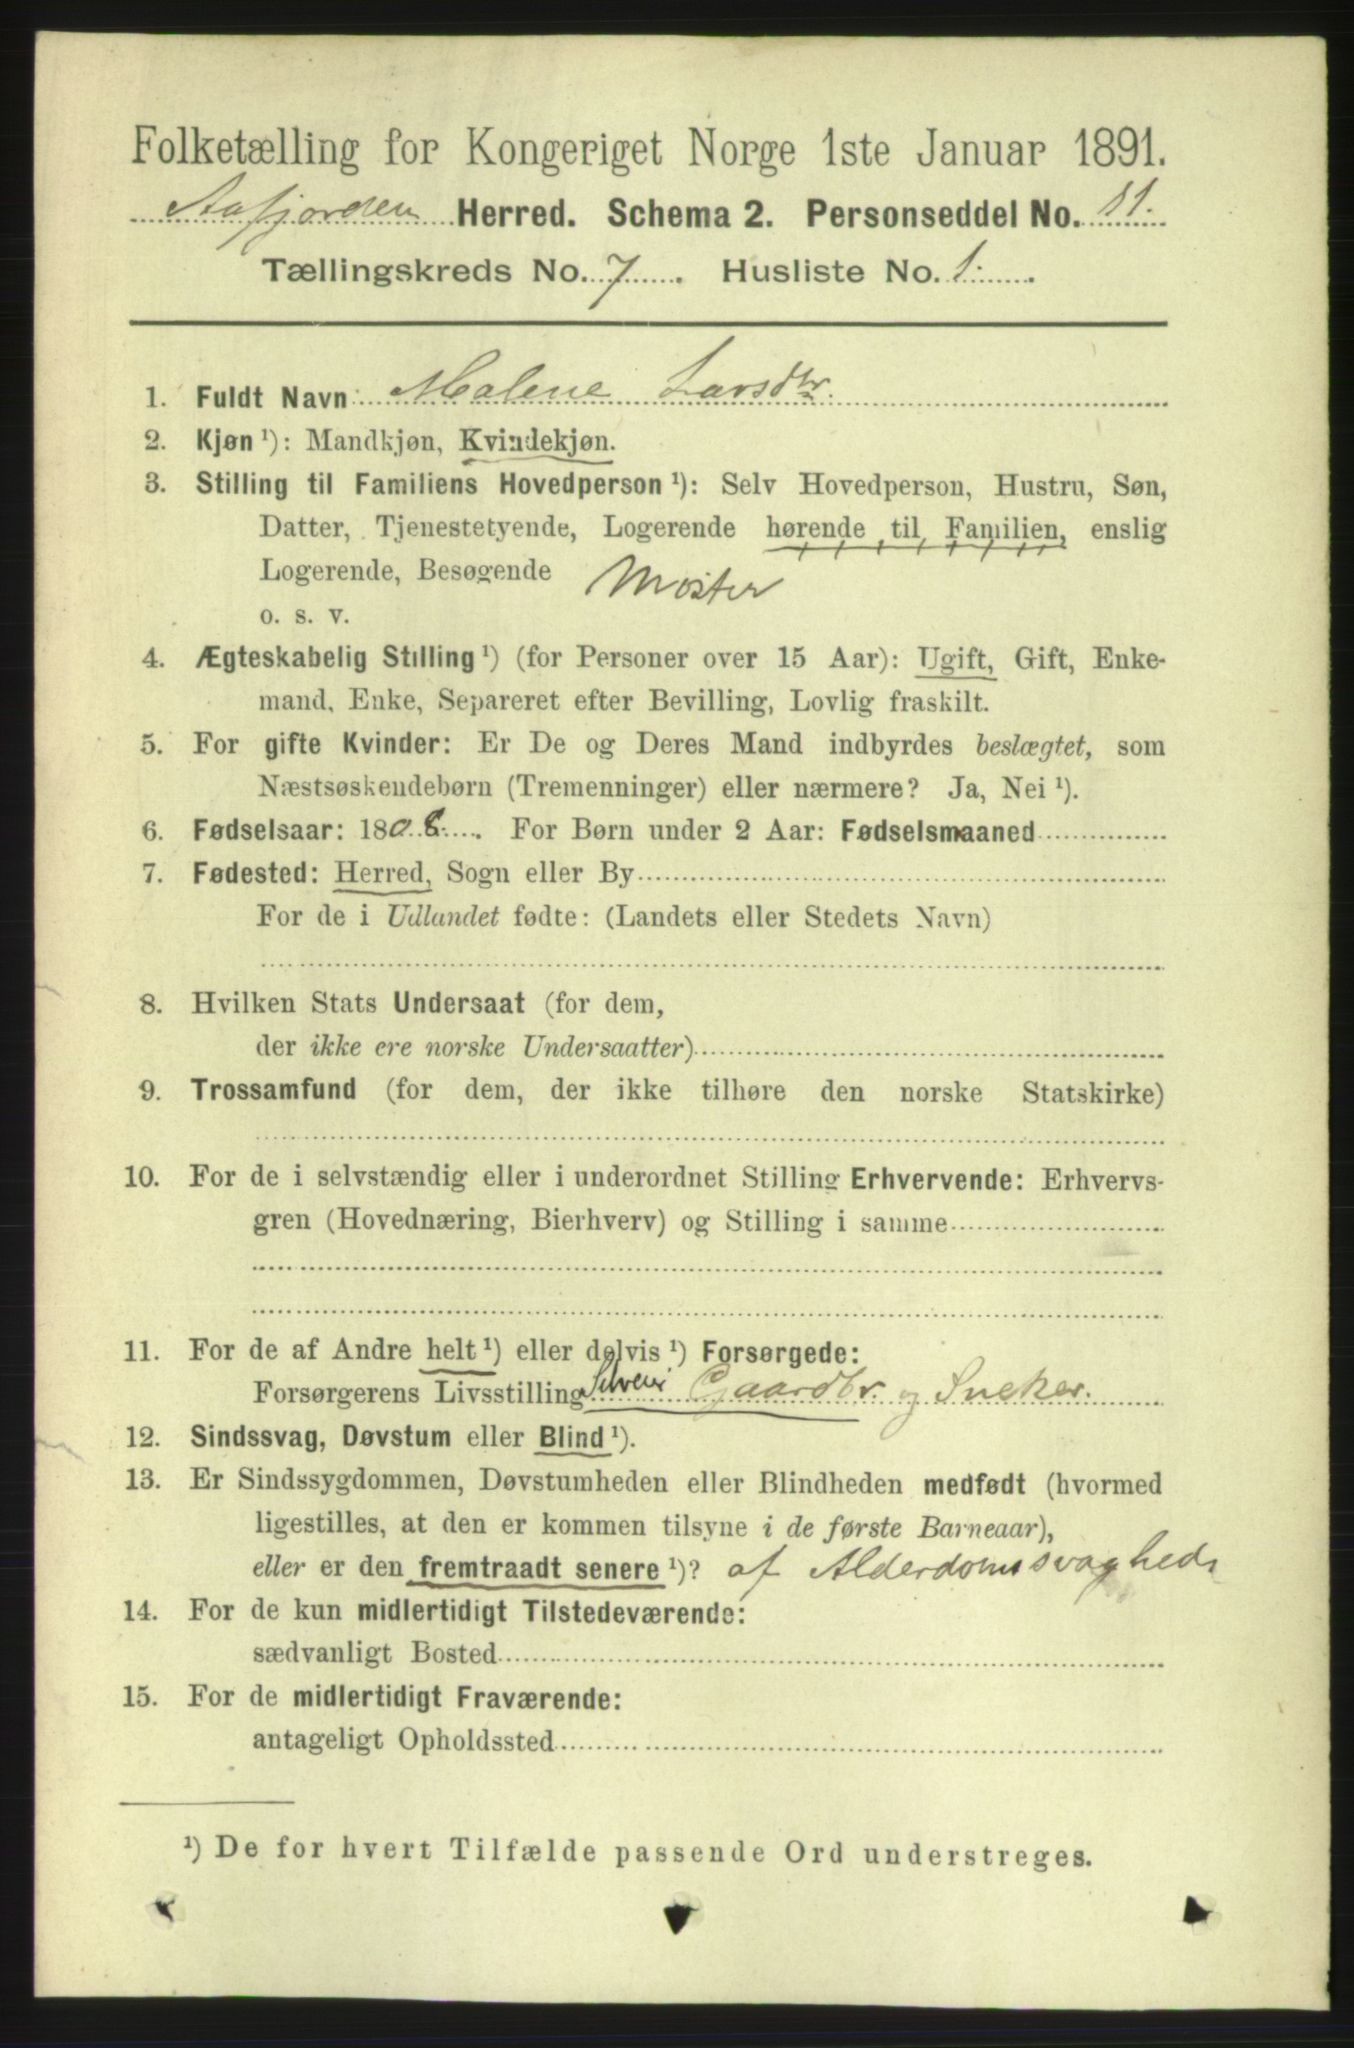 Folketælling for Kongeriget Norge 1ste Januar 1891.
Aafjorden Herred. Schema 2. Personseddel No. 11.
Tællingskreds No. 7. Husliste No. 1.
1. Fuldt Navn Malene Larsdtr.
2. Kjøn ¹): Mandkjøn, Kvindekjøn.
3. Stilling til Familiens Hovedperson ¹): Selv Hovedperson, Hustru, Søn,
Datter, Tjenestetyende, Logerende hørende til Familien, enslig
Logerende, Besøgende Moster
o. s. v.
4. Ægteskabelig Stilling ¹) (for Personer over 15 Aar): Ugift, Gift, Enke-
mand, Enke, Separeret efter Bevilling, Lovlig fraskilt.
5. For gifte Kvinder: Er De og Deres Mand indbyrdes beslægtet, som
Næstsøskendebørn (Tremenninger) eller nærmere? Ja, Nei ¹).
6. Fødselsaar: 1808. For Børn under 2 Aar: Fødselsmaaned
7. Fødested: Herred, Sogn eller By
For de i Udlandet fødte: (Landets eller Stedets Navn)
8. Hvilken Stats Undersaat (for dem,
der ikke ere norske Undersaatter)
9. Trossamfund (for dem, der ikke tilhøre den norske Statskirke)
10. For de i selvstændig eller i underordnet Stilling Erhvervende: Erhvervs-
gren (Hovednæring, Bierhverv) og Stilling i samme
11. For de af Andre helt ¹) eller delvis ¹) Forsørgede:
Forsørgerens Livsstilling Selveier Gaardbr. og Sneker.
12. Sindssvag, Døvstum eller Blind ¹).
13. Er Sindssygdommen, Døvstumheden eller Blindheden medfødt (hvormed
ligestilles, at den er kommen tilsyne i de første Barneaar),
eller er den fremtraadt senere ¹)? af Alderdomssvaghed
14. For de kun midlertidigt Tilstedeværende:
sædvanligt Bosted
15. For de midlertidigt Fraværende:
antageligt Opholdssted
¹) De for hvert Tilfælde passende Ord understreges.